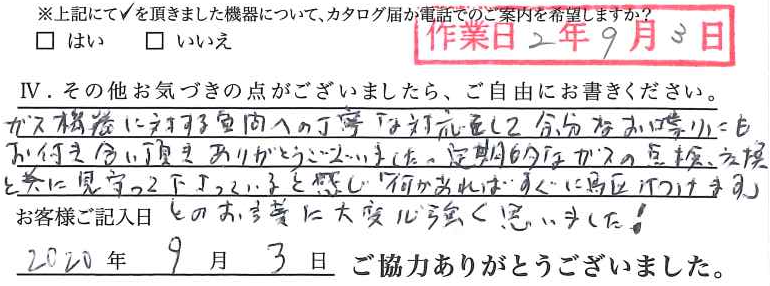 ※上記にて✓を頂きました機器について、カタログ届か電話でのご案内を希望しますか？
□ はい □ いいえ
作業日 2年9月3日
Ⅳ．その他お気づきの点がございましたら、ご自由にお書きください。
ガス機器に対する質問への丁寧な対応そして 余分なお喋りにも
お付き合い頂き ありがとうございました。定期的なガスの点検、交換
と共に見守って下さっていると感じ「何かあればすぐに駆けつけます」
お客様ご記入日 とのお言葉に大変心強く思いました！
2020年 9月 3日 ご協力ありがとうございました。